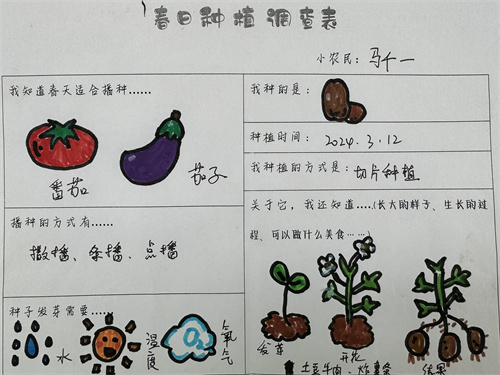 春日种植调查表
小农民：马千一
我知道春天适合播种……
番茄
茄子
播种的方式有……
撒播、条播、点播
种子发芽需要……
水
温度
O₂
氧气
我种的是：
种植时间：2024.3.12
我种植的方式是：切片种植
关于它，我还知道……（长大的样子、生长的过
程、可以做什么美食……）
发芽
开花
结果
土豆牛肉、炸薯条